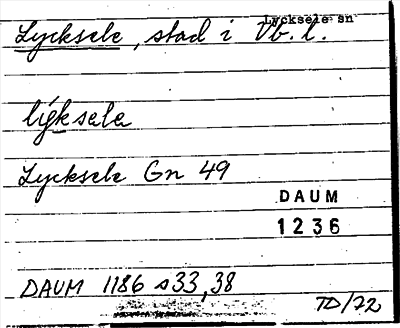 Lycksele sn
Lycksele, stad i Vb. l.
lýksela
Lycksele Gn 49
DAUM
1236
DAUM 1186 s 33, 38
TD/72